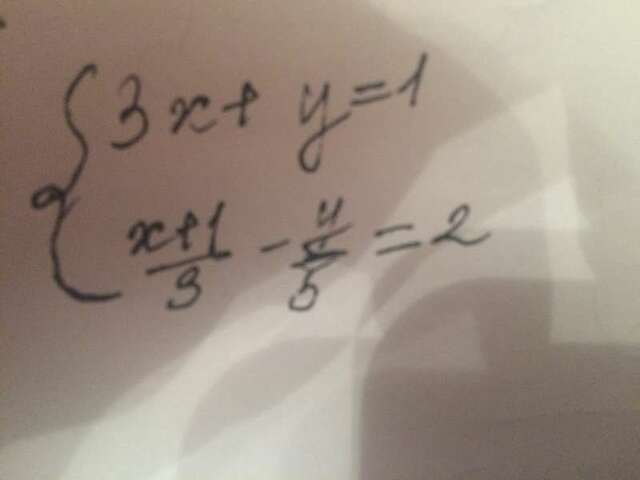 3x + y = 1
(x+1)/3 - y/5 = 2